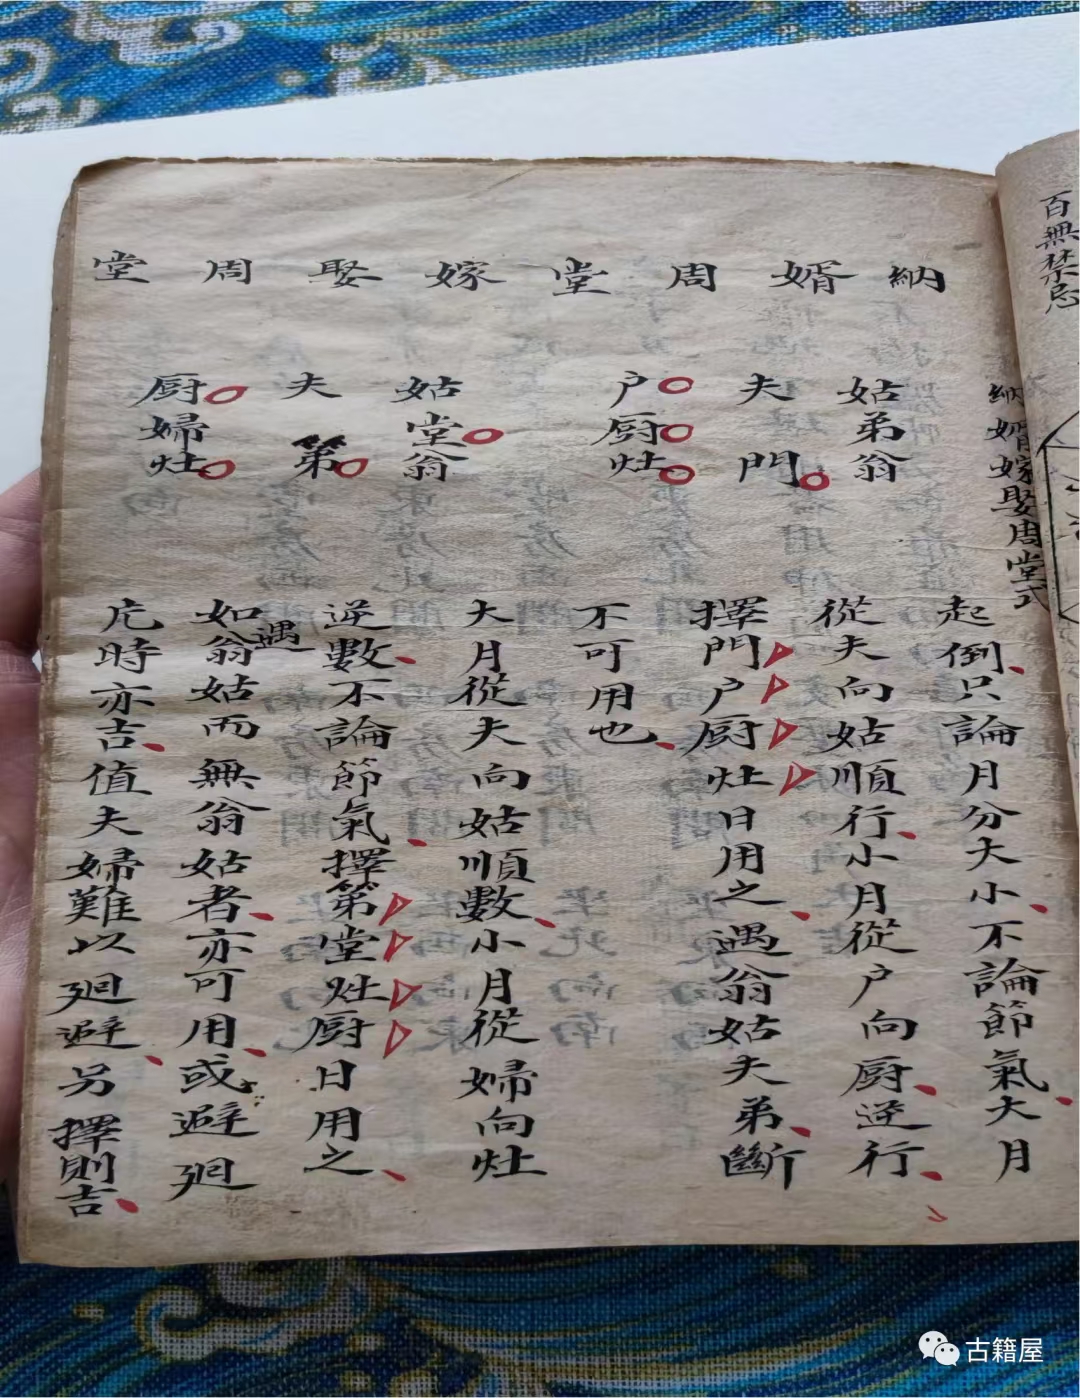 百無禁忌
納婿嫁娶周堂式
納婿周堂
嫁娶周堂
姑弟翁
夫門
户厨灶
姑堂翁
夫第
厨婦灶
起倒只論月分大小不論節氣大月
從夫向姑順行小月從户向厨逆行
擇門户厨灶日用之遇翁姑夫弟斷
不可用也
大月從夫向姑順數小月從婦向灶
逆數不論節氣擇第堂灶厨日用之
如遇翁姑而無翁姑者亦可用或避廻
片時亦吉值夫婦難以廻避另擇則吉
古籍屋